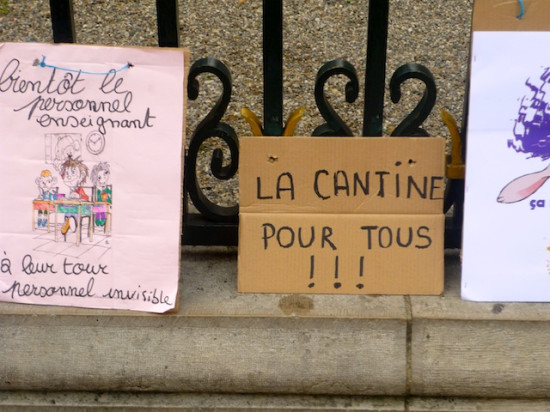 bientôt le
personnel
enseignant
à leur tour
personnel invisible
LA CANTiNE
POUR TOUS
!!!
ça